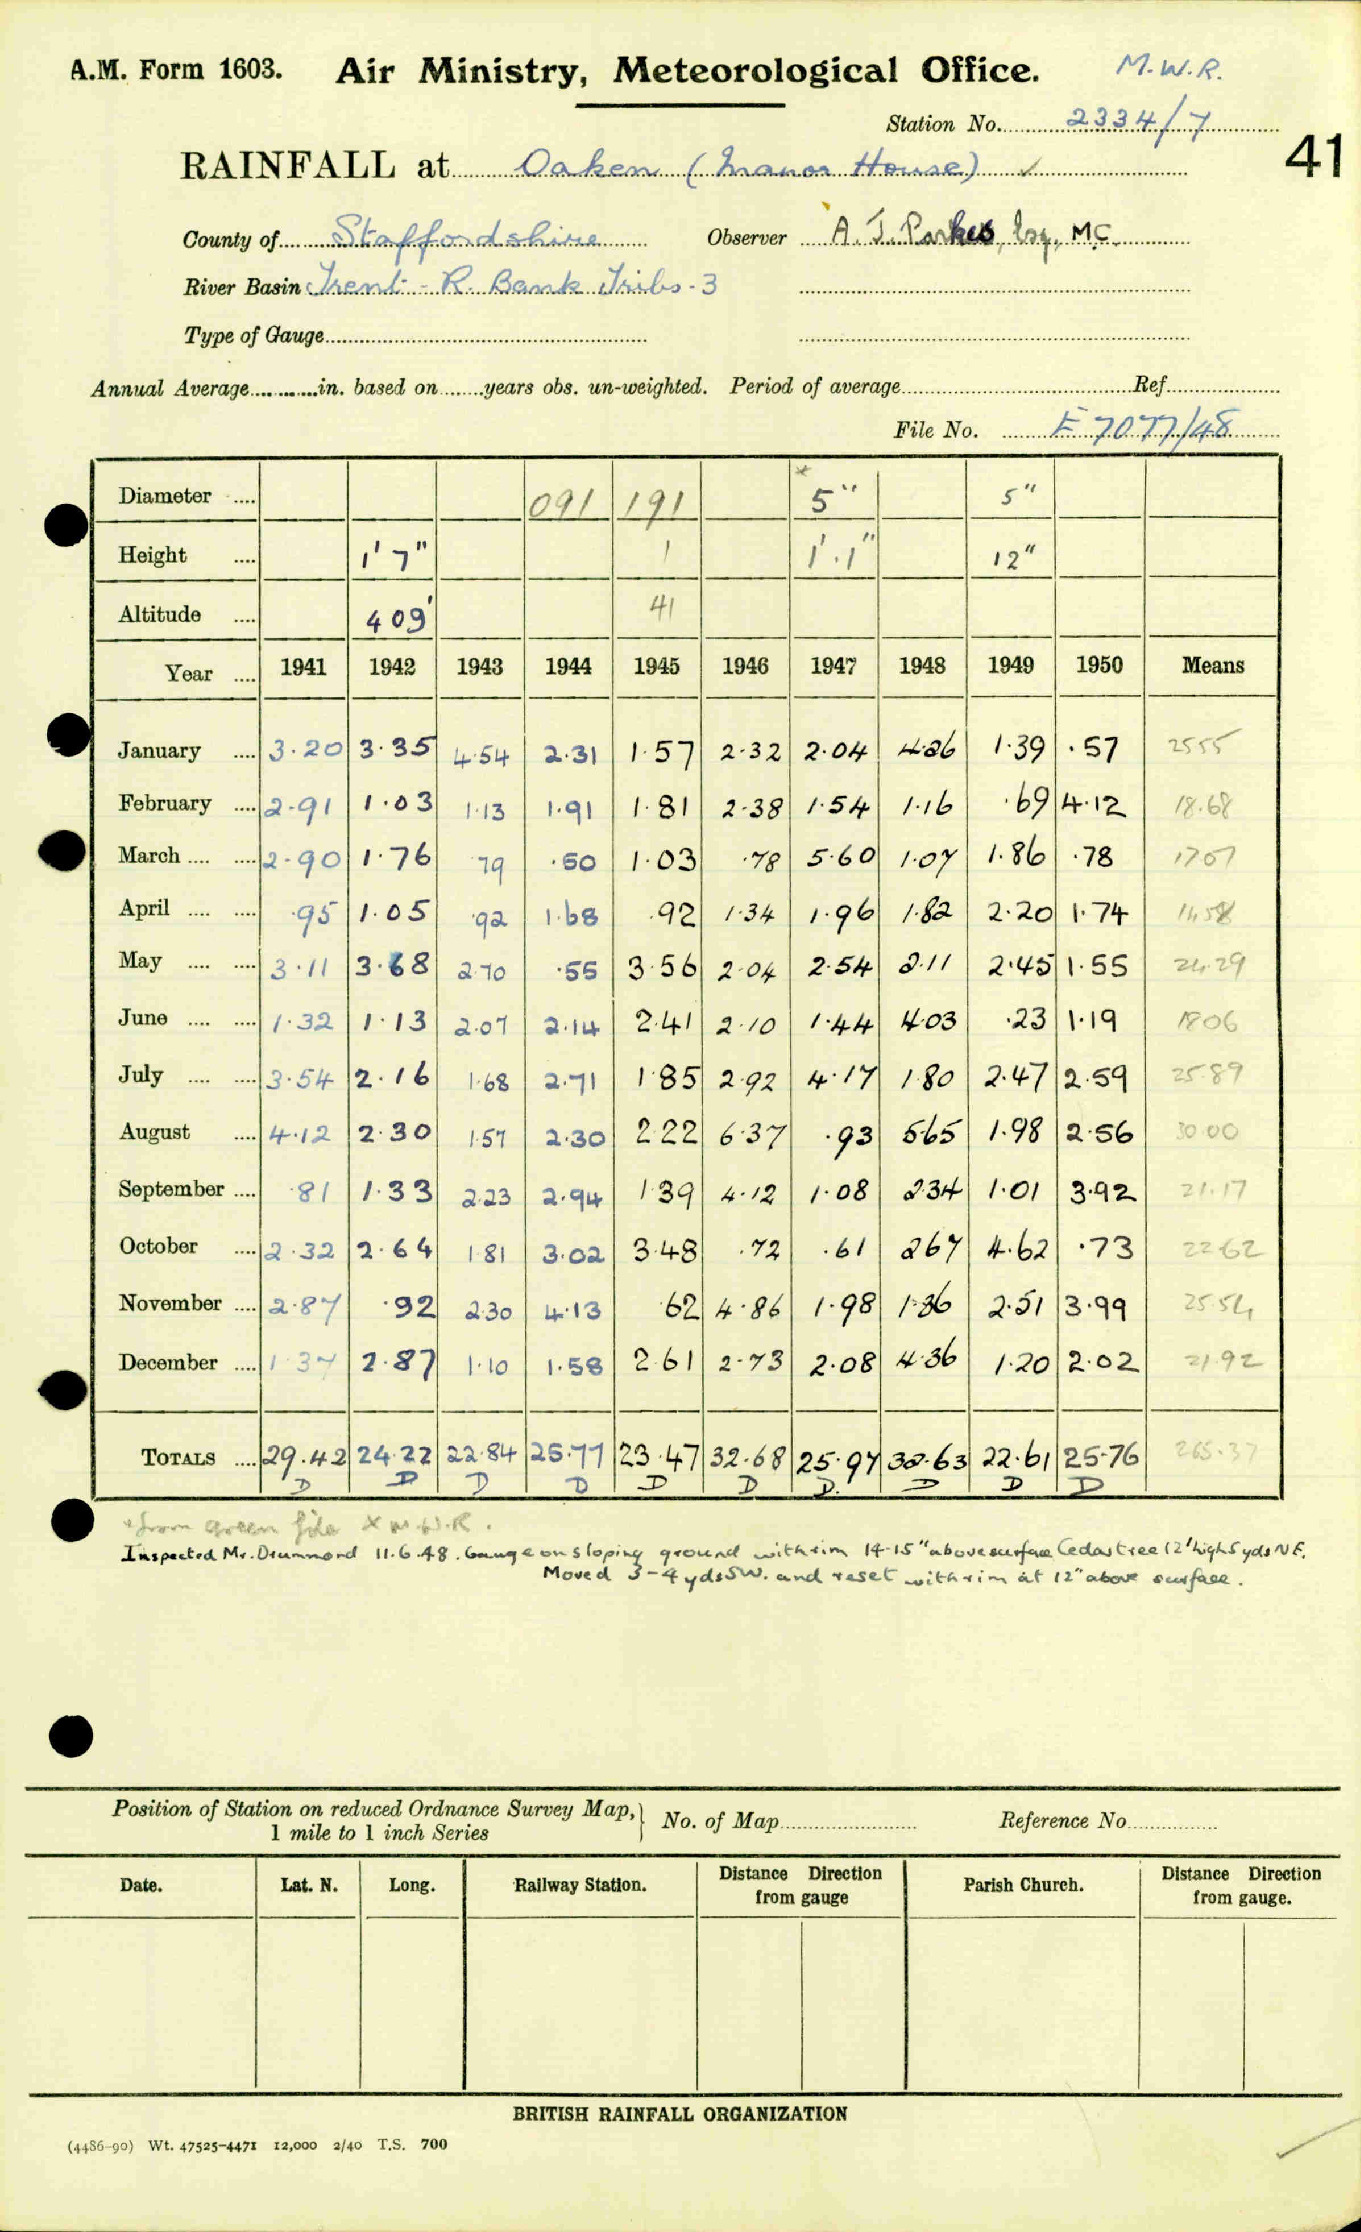 A.M. Form 1603. Air Ministry, Meteorological Office. M.W.R.
Station No. 2334/7
41
RAINFALL at Oaken (Manor House) ✓
County of Staffordshire Observer A. J. Parkes, Esq., M.C.
River Basin Trent - R. Bank Tribs - 3
Type of Gauge
Annual Average in. based on years obs. un-weighted. Period of average Ref
File No. E 7077/48
Diameter 091 191 * 5" 5"
Height 1' 7" 1 1'.1" 12"
Altitude 409' 41
Year 1941 1942 1943 1944 1945 1946 1947 1948 1949 1950 Means
January 3.20 3.35 4.54 2.31 1.57 2.32 2.04 4.26 1.39 .57 25.55
February 2.91 1.03 1.13 1.91 1.81 2.38 1.54 1.16 .69 4.12 18.68
March 2.90 1.76 79 .50 1.03 .78 5.60 1.07 1.86 .78 17.07
April .95 1.05 .92 1.68 .92 1.34 1.96 1.82 2.20 1.74 14.58
May 3.11 3.68 2.70 .55 3.56 2.04 2.54 2.11 2.45 1.55 24.29
June 1.32 1.13 2.07 2.14 2.41 2.10 1.44 4.03 .23 1.19 18.06
July 3.54 2.16 1.68 2.71 1.85 2.92 4.17 1.80 2.47 2.59 25.89
August 4.12 2.30 1.57 2.30 2.22 6.37 .93 5.65 1.98 2.56 30.00
September .81 1.33 2.23 2.94 1.39 4.12 1.08 2.34 1.01 3.92 21.17
October 2.32 2.64 1.81 3.02 3.48 .72 .61 2.67 4.62 .73 22.62
November 2.87 .92 2.30 4.13 .62 4.86 1.98 1.36 2.51 3.99 25.54
December 1.37 2.87 1.10 1.58 2.61 2.73 2.08 4.36 1.20 2.02 21.92
TOTALS 29.42 24.22 22.84 25.77 23.47 32.68 25.97 32.63 22.61 25.76 265.37
D D D D D D D. D D D
* from green file & M.W.R.
Inspected Mr. Drummond 11.6.48. Gauge on sloping ground with rim 14-15" above surface Cedar tree 12' high 5 yds NE.
Moved 3-4 yds SW. and reset with rim at 12" above surface.
Position of Station on reduced Ordnance Survey Map,
1 mile to 1 inch Series
No. of Map Reference No.
Date. Lat. N. Long. Railway Station. Distance Direction from gauge Parish Church. Distance Direction from gauge.
BRITISH RAINFALL ORGANIZATION
(4486-90) Wt. 47525-4471 12,000 2/40 T.S. 700